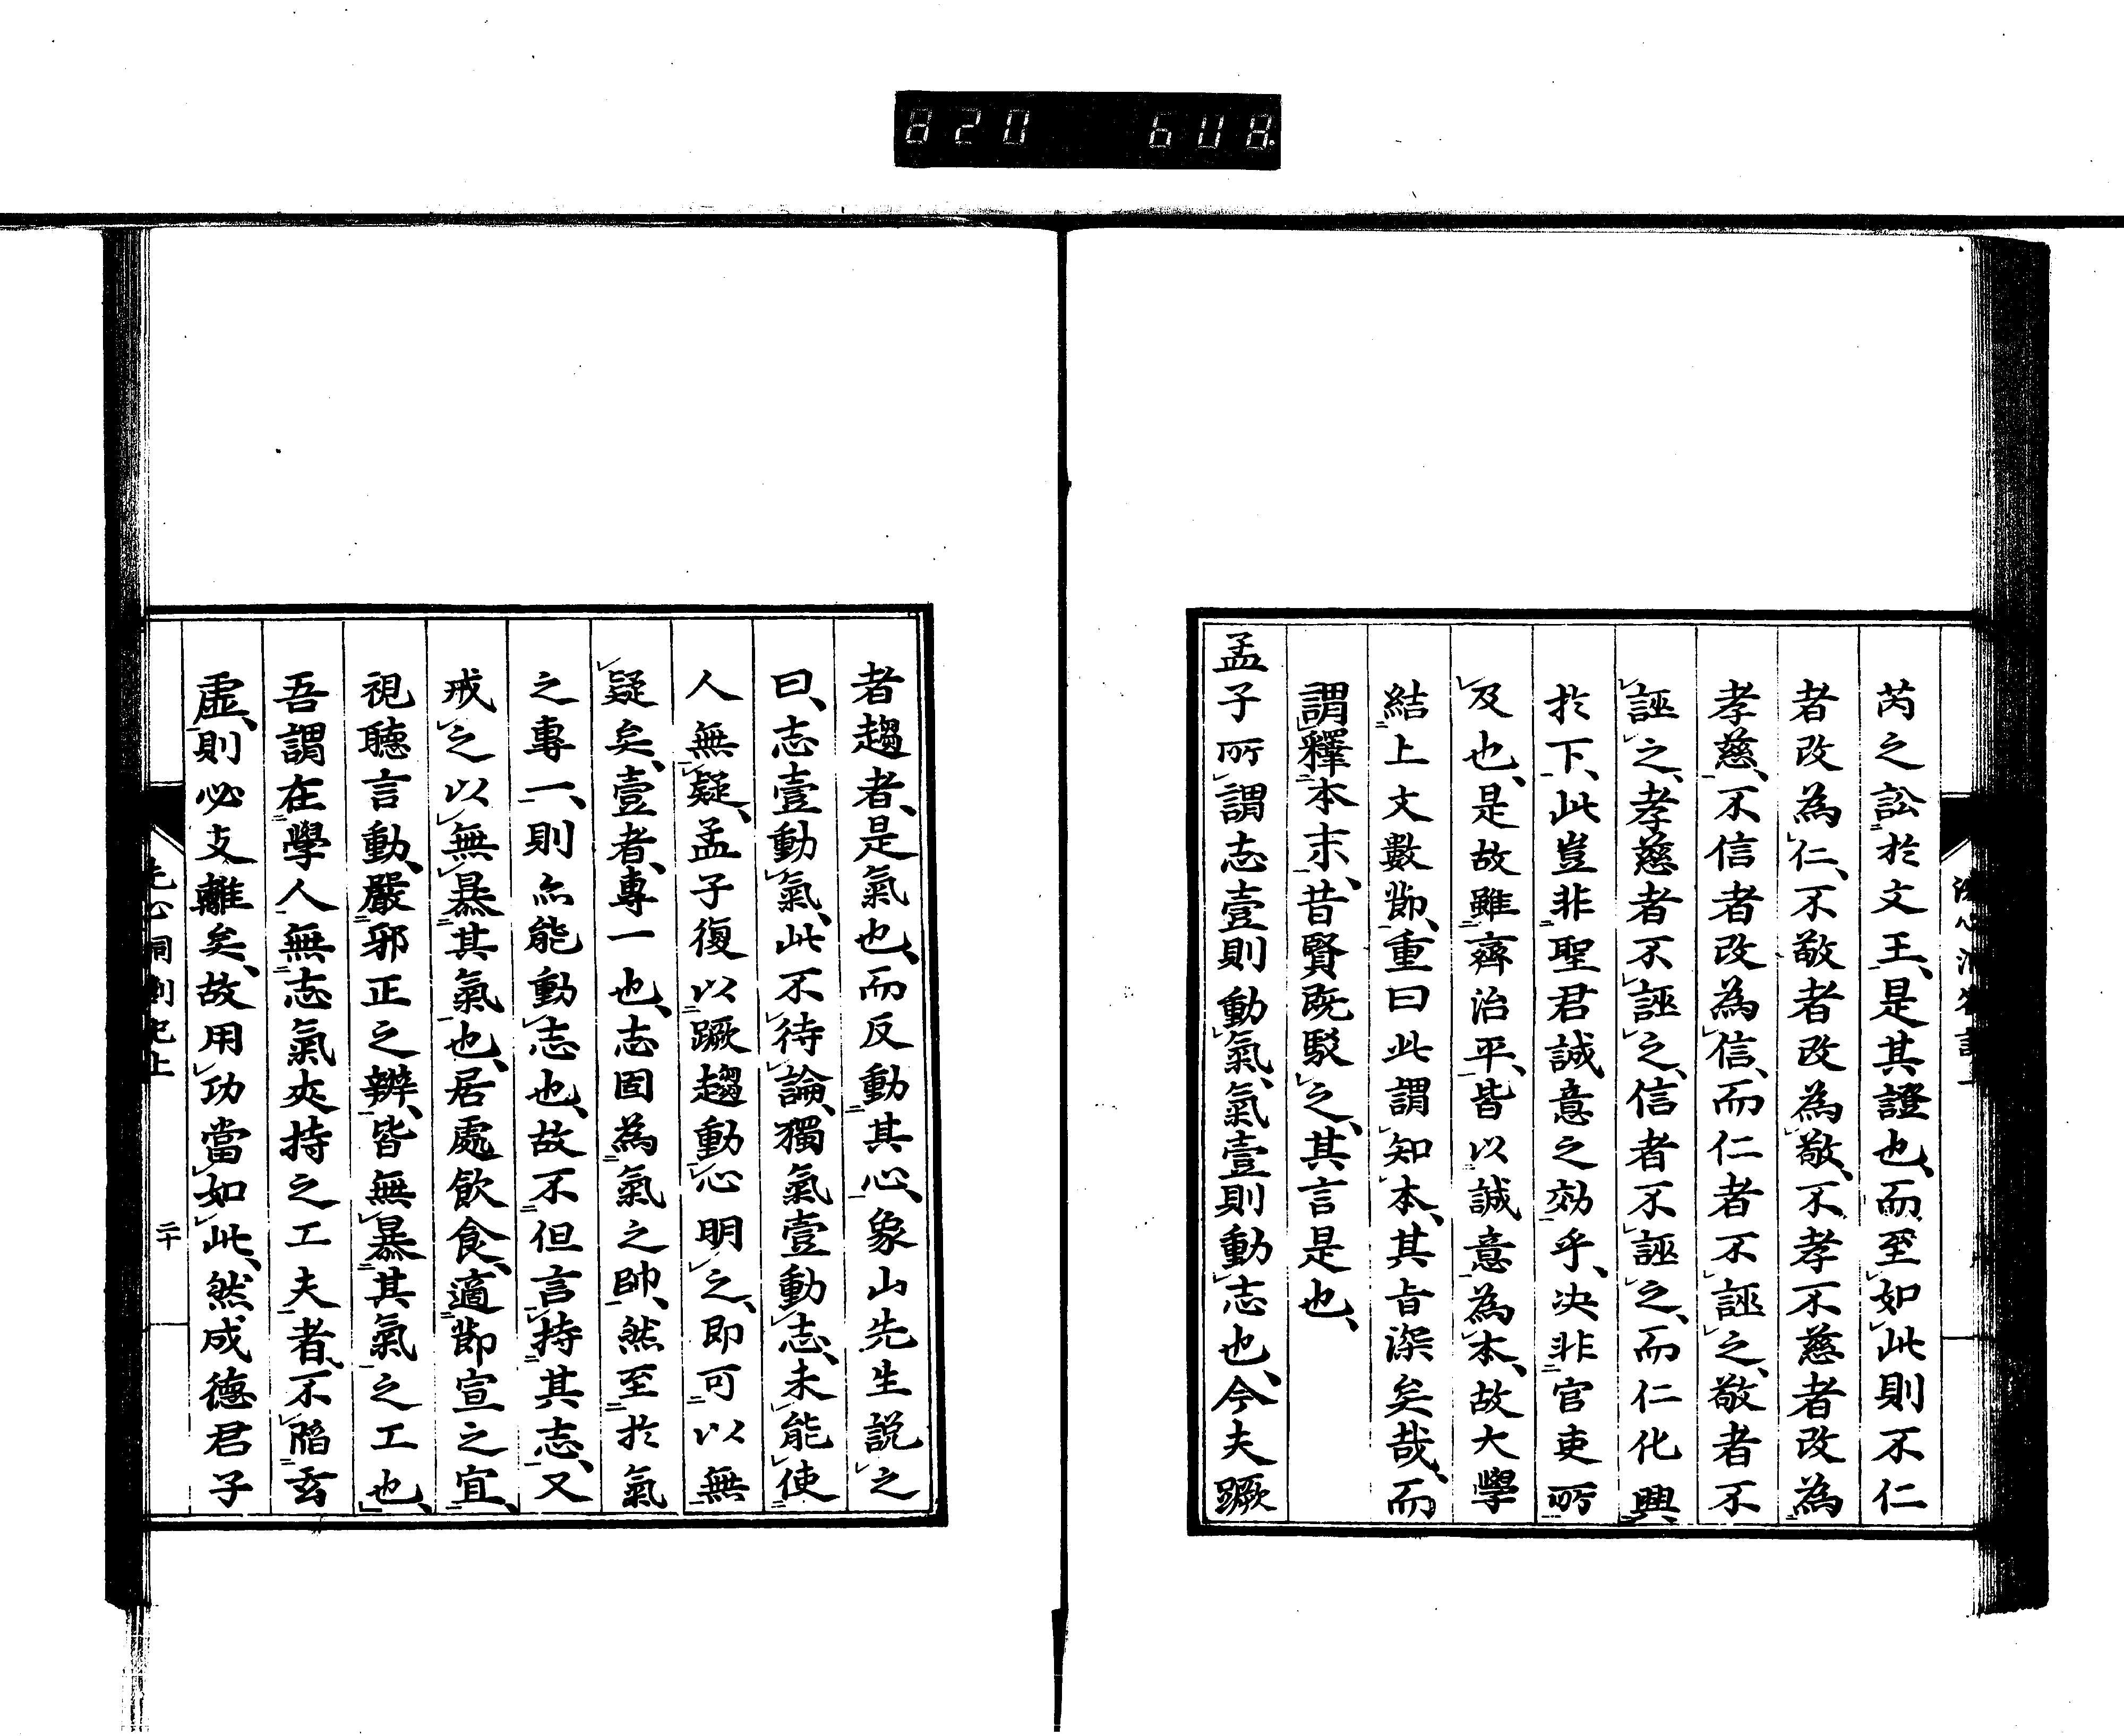 芮之訟於文王、是其證也、而至如此則不仁
者改為仁、不敬者改為敬、不孝不慈者改為
孝慈、不信者改為信、而仁者不誣之、敬者不
誣之、孝慈者不誣之、信者不誣之、而仁化興
於下、此豈非聖君誠意之効乎、决非官吏所
及也、是故雖齊治平、皆以誠意為本、故大學
結上文數節、重曰此謂知本、其旨深矣哉、而
謂釋本末、昔賢既駁之、其言是也、
孟子所謂志壹則動氣、氣壹則動志也、今夫蹶
者趨者、是氣也、而反動其心、象山先生說之
曰、志壹動氣、此不待論、獨氣壹動志、未能使
人無疑、孟子復以蹶趨動心明之、即可以無
疑矣、壹者、專一也、志固為氣之帥、然至於氣
之專一、則亦能動志也、故不但言持其志、又
戒之以無暴其氣也、居處飲食、適節宣之宜、
視聽言動、嚴邪正之辨、皆無暴其氣之工也、
吾謂在學人無志氣夾持之工夫者、不陷玄
虛、則必支離矣、故用功當如此、然成德君子
二十